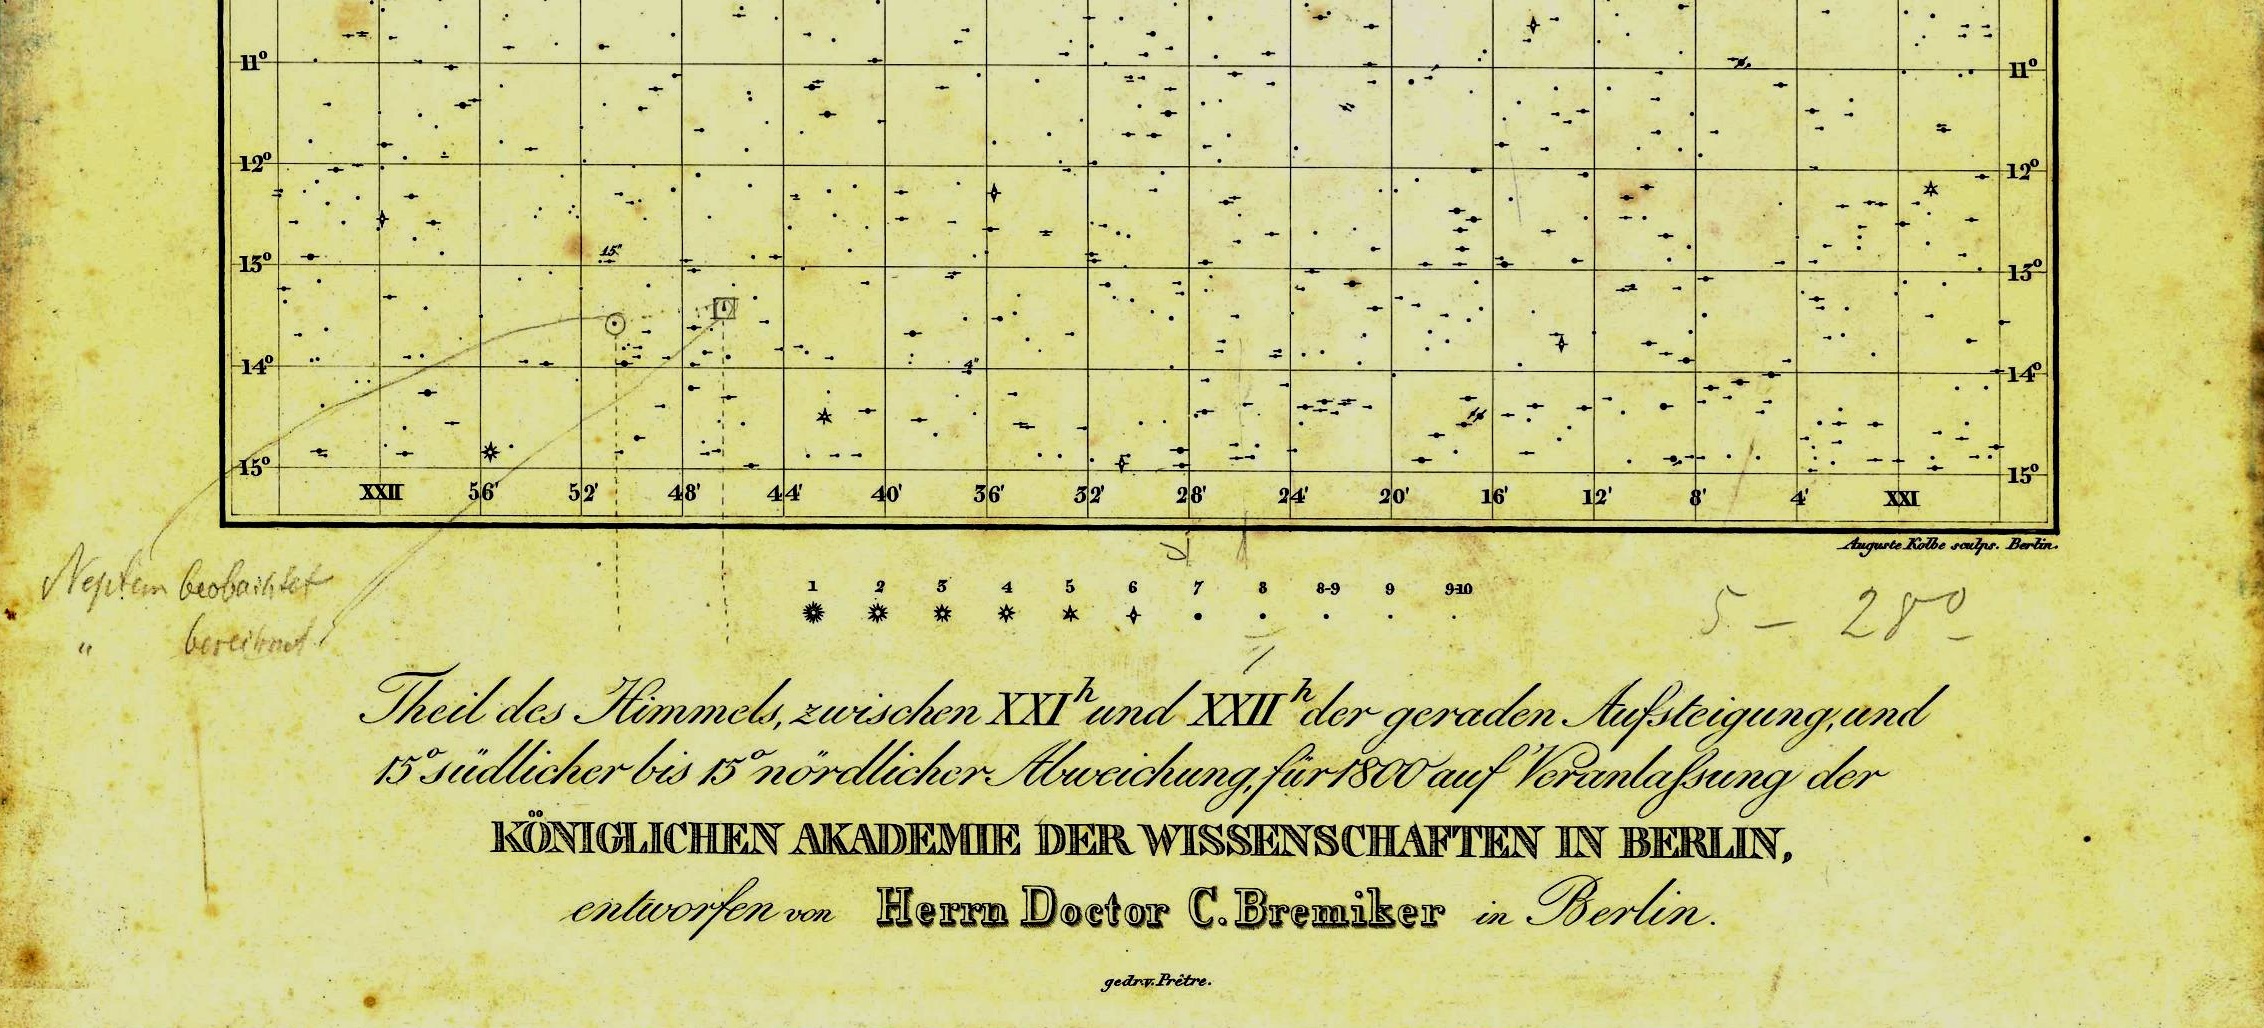 11° 11°
12° 12°
13° 15" 13°
14° 4" 14°
15° 15°
XXII 56' 52' 48' 44' 40' 36' 32' 28' 24' 20' 16' 12' 8' 4' XXI
Auguste Kolbe sculps. Berlin.
Neptun beobachtet
" berechnet
1 2 3 4 5 6 7 8 8-9 9 9-10
5 – 28°
Theil des Himmels, zwischen XXIʰ und XXIIʰ der geraden Aufsteigung, und
15° südlicher bis 15° nördlicher Abweichung, für 1800 auf Veranlaſsung der
KÖNIGLICHEN AKADEMIE DER WISSENSCHAFTEN IN BERLIN,
entworfen von Herrn Doctor C. Bremiker in Berlin.
gedr. v. Prêtre.